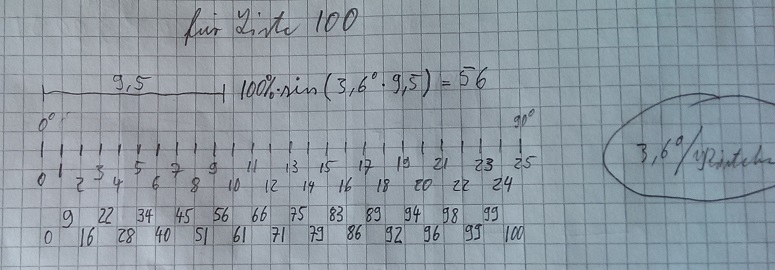 für Liste 100
9,5 100%·sin(3,6°·9,5) = 56
0° 90°
3,6°/
0 1 2 3 4 5 6 7 8 9 10 11 12 13 14 15 16 17 18 19 20 21 22 23 24 25
9 22 34 45 56 66 75 83 89 94 98 99
0 16 28 40 51 61 71 79 86 92 96 99 100